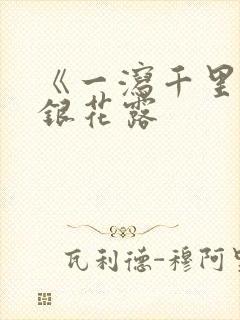 《一瀉千里
銀花露
瓦利德-穆阿